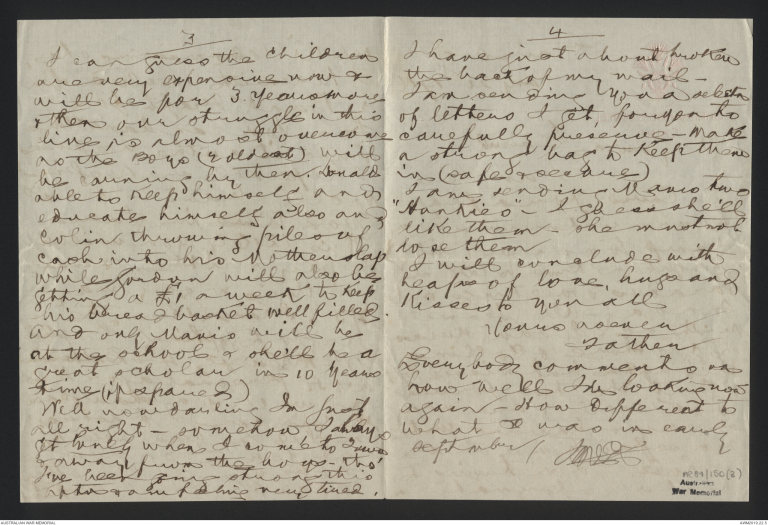 3
I can guess the children
are very expensive now &
will be for 3 years more
& then our struggle in this
line is almost overcome
as the Boys (2 oldest) will
be earning by then. Donald
able to keep himself and
educate himself also and
Colin throwing piles of
cash into his Mothers lap
while Gordon will also be
getting a £1 a week to keep
his bread basket well filled.
And only Mavis will be
at the school & she'll be a
great scholar in 10 years
time (if spared)
Well now darling I'm just
all right - somehow I always
get lonely when I come to Town
& away from the boys - tho'
I've been going strong this
after & am feeling very tired.
4
I have just about broken
the back of my mail -
I am sending you a selection
of letters I get for you to
carefully preserve - Make
a strong bag to keep them
in (safe & secure)
I am sending Mavis two
"Hankies" - I guess she'll
like them - she must not
lose them
I will conclude with
heaps of love, hugs and
Kisses to you all
Yours as ever
Father
Everybody comments on
how well I'm looking now
again - How different to
what I was in early
September
PR84/150(2)
Australian
War Memorial
AUSTRALIAN WAR MEMORIAL